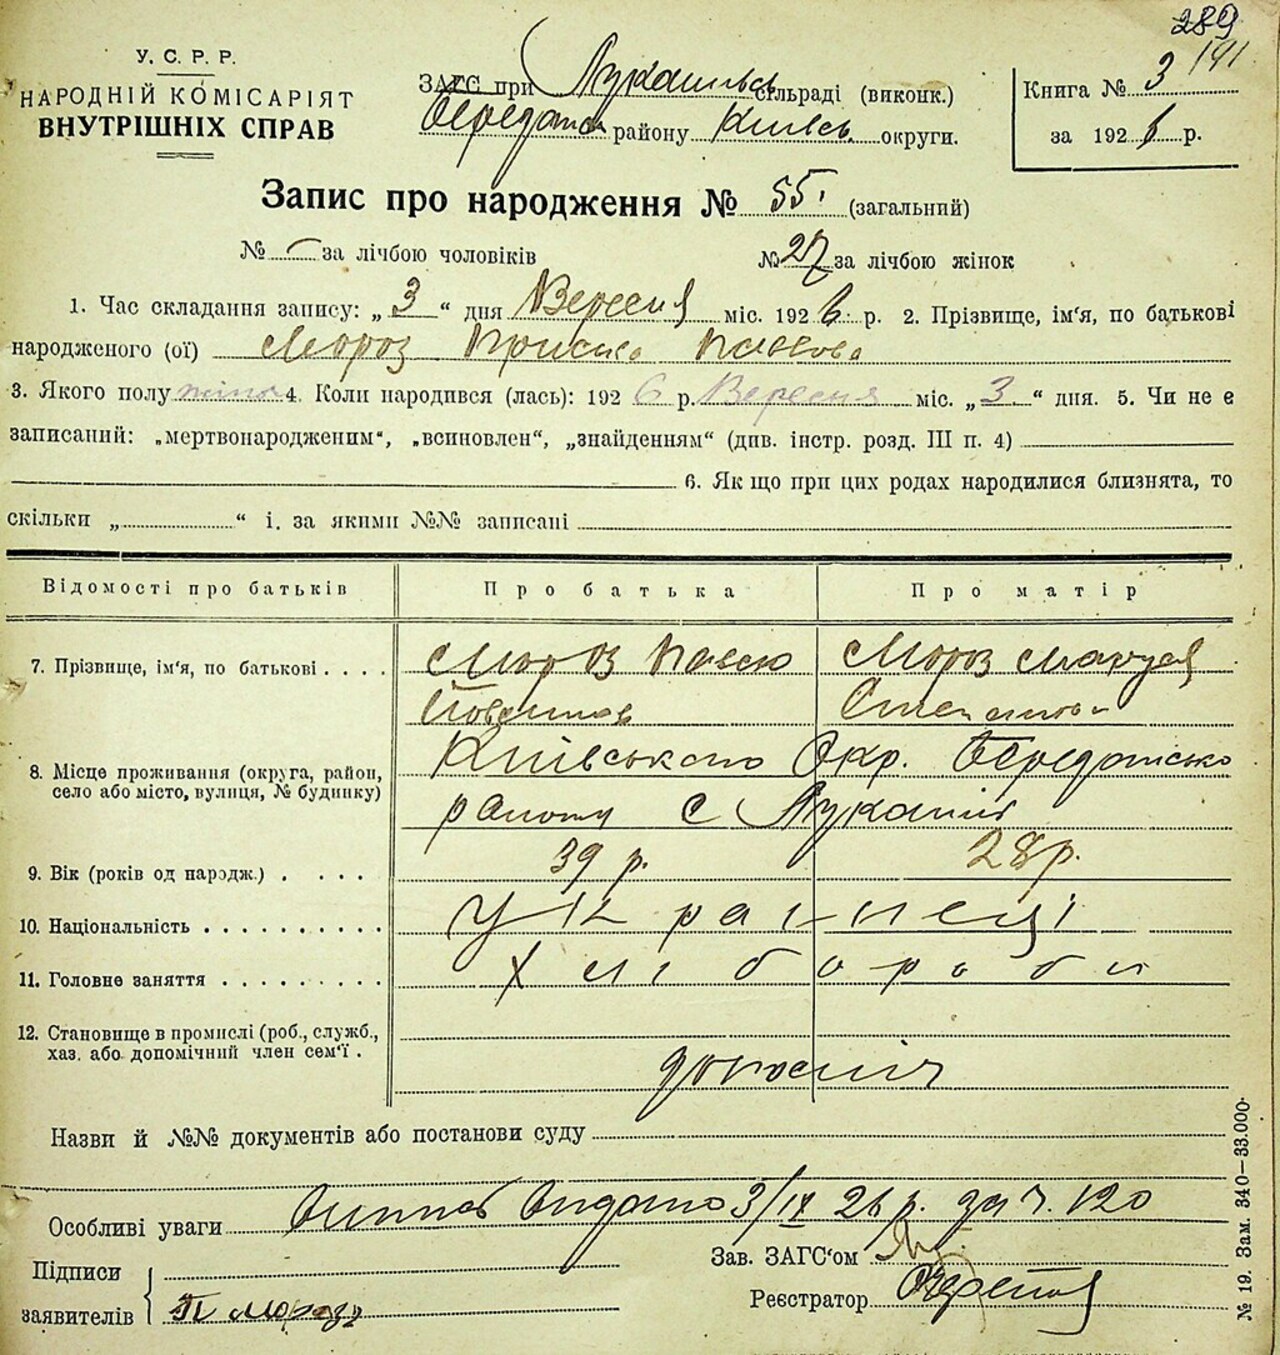 289
191
У. С. Р. Р.
НАРОДНІЙ КОМІСАРІЯТ
ВНУТРІШНІХ СПРАВ
ЗАГС при Лукашивсь сільраді (виконк.)
району Київсь округи.
Книга № 3
за 1926 р.
Запис про народження № 55 (загальний)
№ – за лічбою чоловіків
№ 27 за лічбою жінок
1. Час складання запису: „ 3 “ дня Вересня міс. 1926 р. 2. Прізвище, ім‘я, по батькові
народженого (ої) Мороз Приська Павлова
3. Якого полу жіно 4. Коли народився (лась): 1926 р. Вересня міс. „ 3 “ дня. 5. Чи не є
записаний: „мертвонародженим“, „всиновлен“, „знайденням“ (див. інстр. розд. III п. 4)
6. Як що при цих родах народилися близнята, то
скільки „ “ і, за якими №№ записані
Відомості про батьків Про батька Про матір
7. Прізвище, ім‘я, по батькові . . . . Мороз Павло Мороз Маруся
8. Місце проживання (округа, район,
село або місто, вулиця, № будинку)
Київського Окр.
району с Лукаші
9. Вік (років од народж.) . . . . . 39 р. 28 р.
10. Національність . . . . . . . . . . Українеці
11. Головне заняття . . . . . . . . . Хлібороби
12. Становище в промислі (роб., служб.,
хаз. або допомічний член сем‘ї .
Назви й №№ документів або постанови суду
Особливі уваги Видано 3/IX 26 р. за ч. 120
Зав. ЗАГС‘ом
Підписи
заявителів
П Мороз
Реєстратор
№ 19. Зам. 340—33.000